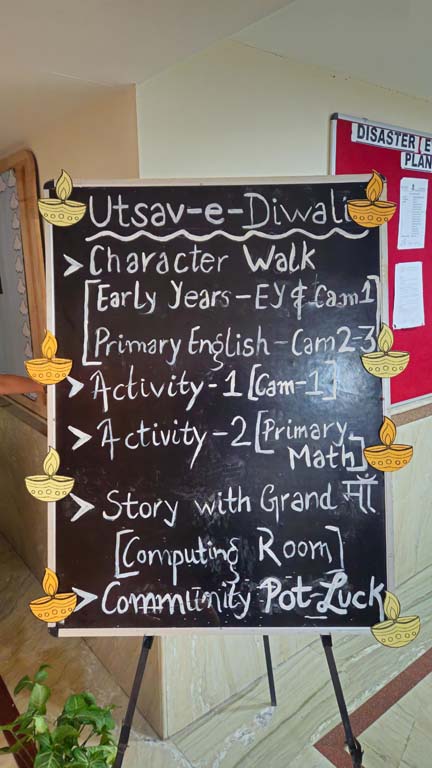 Utsav-e-Diwali
> Character Walk
[Early Years - EY & Cam1
Primary English - Cam 2-3]
> Activity - 1 [Cam-1]
> Activity - 2 [Primary
Math]
> Story with Grand माँ
[Computing Room]
> Community Pot-Luck
DISASTER (E
PLAN